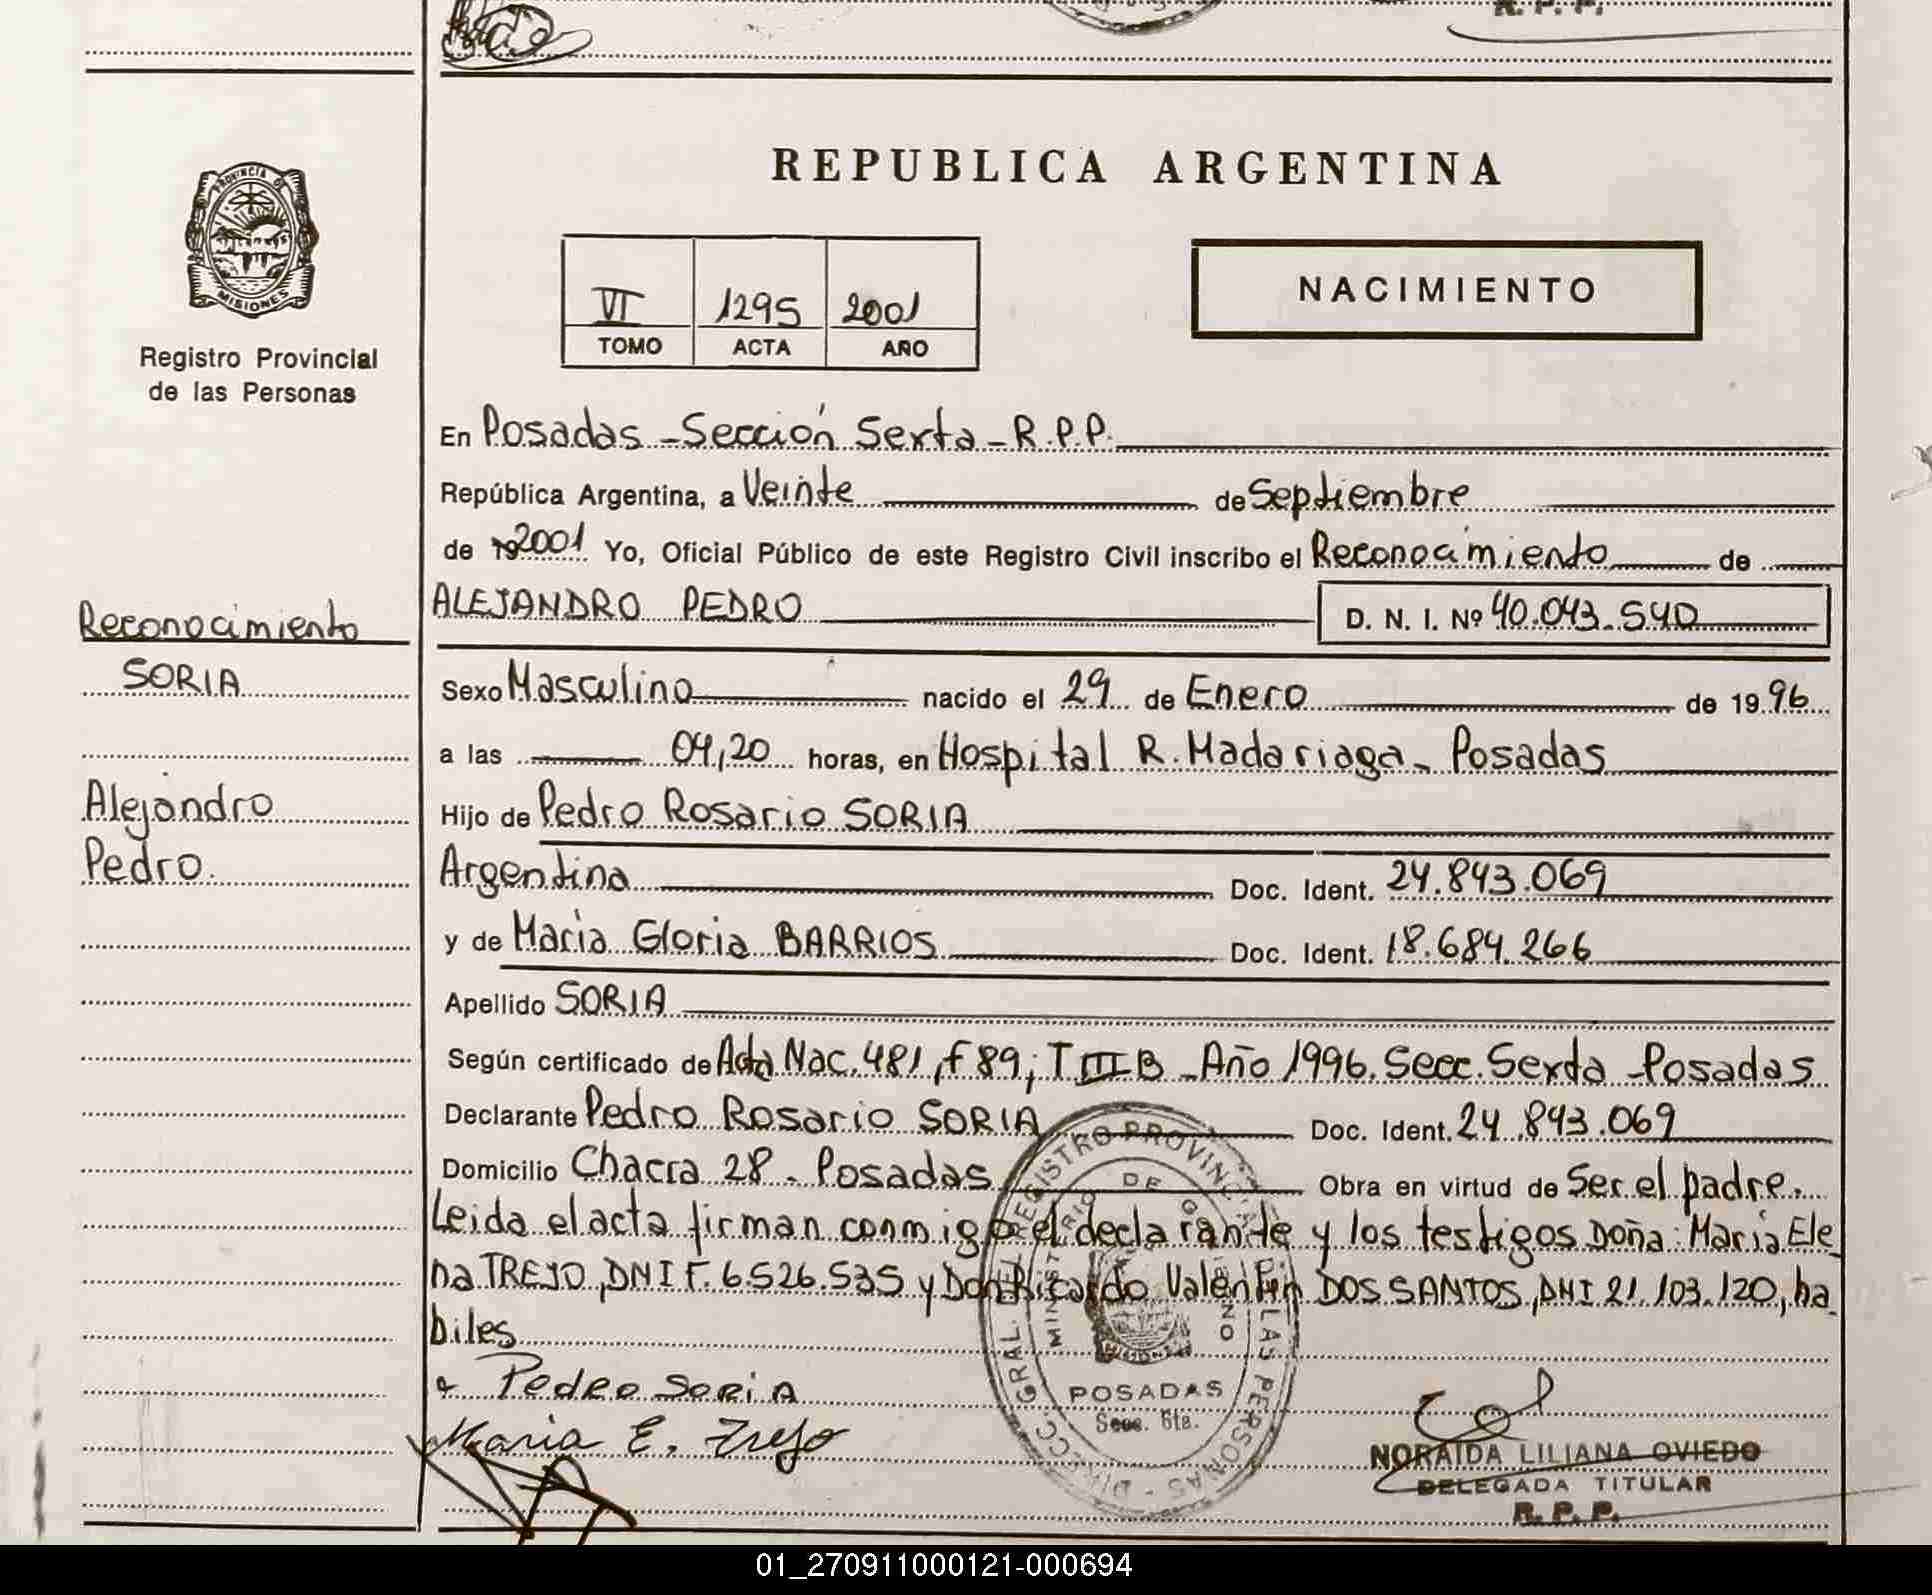 R. P. P.
PROVINCIA DE
MISIONES
Registro Provincial
de las Personas
REPUBLICA ARGENTINA
VI 1295 2001
TOMO ACTA AÑO
NACIMIENTO
En Posadas - Sección Sexta - R.P.P.
República Argentina, a Veinte de Septiembre
de 192001 Yo, Oficial Público de este Registro Civil inscribo el Reconocimiento de
ALEJANDRO PEDRO D. N. I. Nº 40.043.540
Reconocimiento
SORIA
Alejandro
Pedro.
Sexo Masculino nacido el 29 de Enero de 1996
a las 04,20 horas, en Hospital R. Madariaga - Posadas
Hijo de Pedro Rosario SORIA
Argentina Doc. Ident. 24.843.069
y de Maria Gloria BARRIOS Doc. Ident. 18.684.266
Apellido SORIA
Según certificado de Acta Nac. 481, f 89; T III B - Año 1996. Secc. Sexta - Posadas
Declarante Pedro Rosario SORIA Doc. Ident. 24.843.069
Domicilio Chacra 28 - Posadas Obra en virtud de Ser el padre.
Leida el acta firman conmigo el declarante y los testigos Doña: Maria Ele
na TREJO, DNI F. 6.526.535 y Don Ricardo Valentin DOS SANTOS, DNI 21.103.120, ha
biles
Pedro Soria
Maria E. Trejo
DIRECC. GRAL. REGISTRO PROVINCIAL DE LAS PERSONAS
MINISTERIO DE GOBIERNO
MISIONES
POSADAS
Secc. 6ta.
NORAIDA LILIANA OVIEDO
DELEGADA TITULAR
R. P. P.
01_270911000121-000694